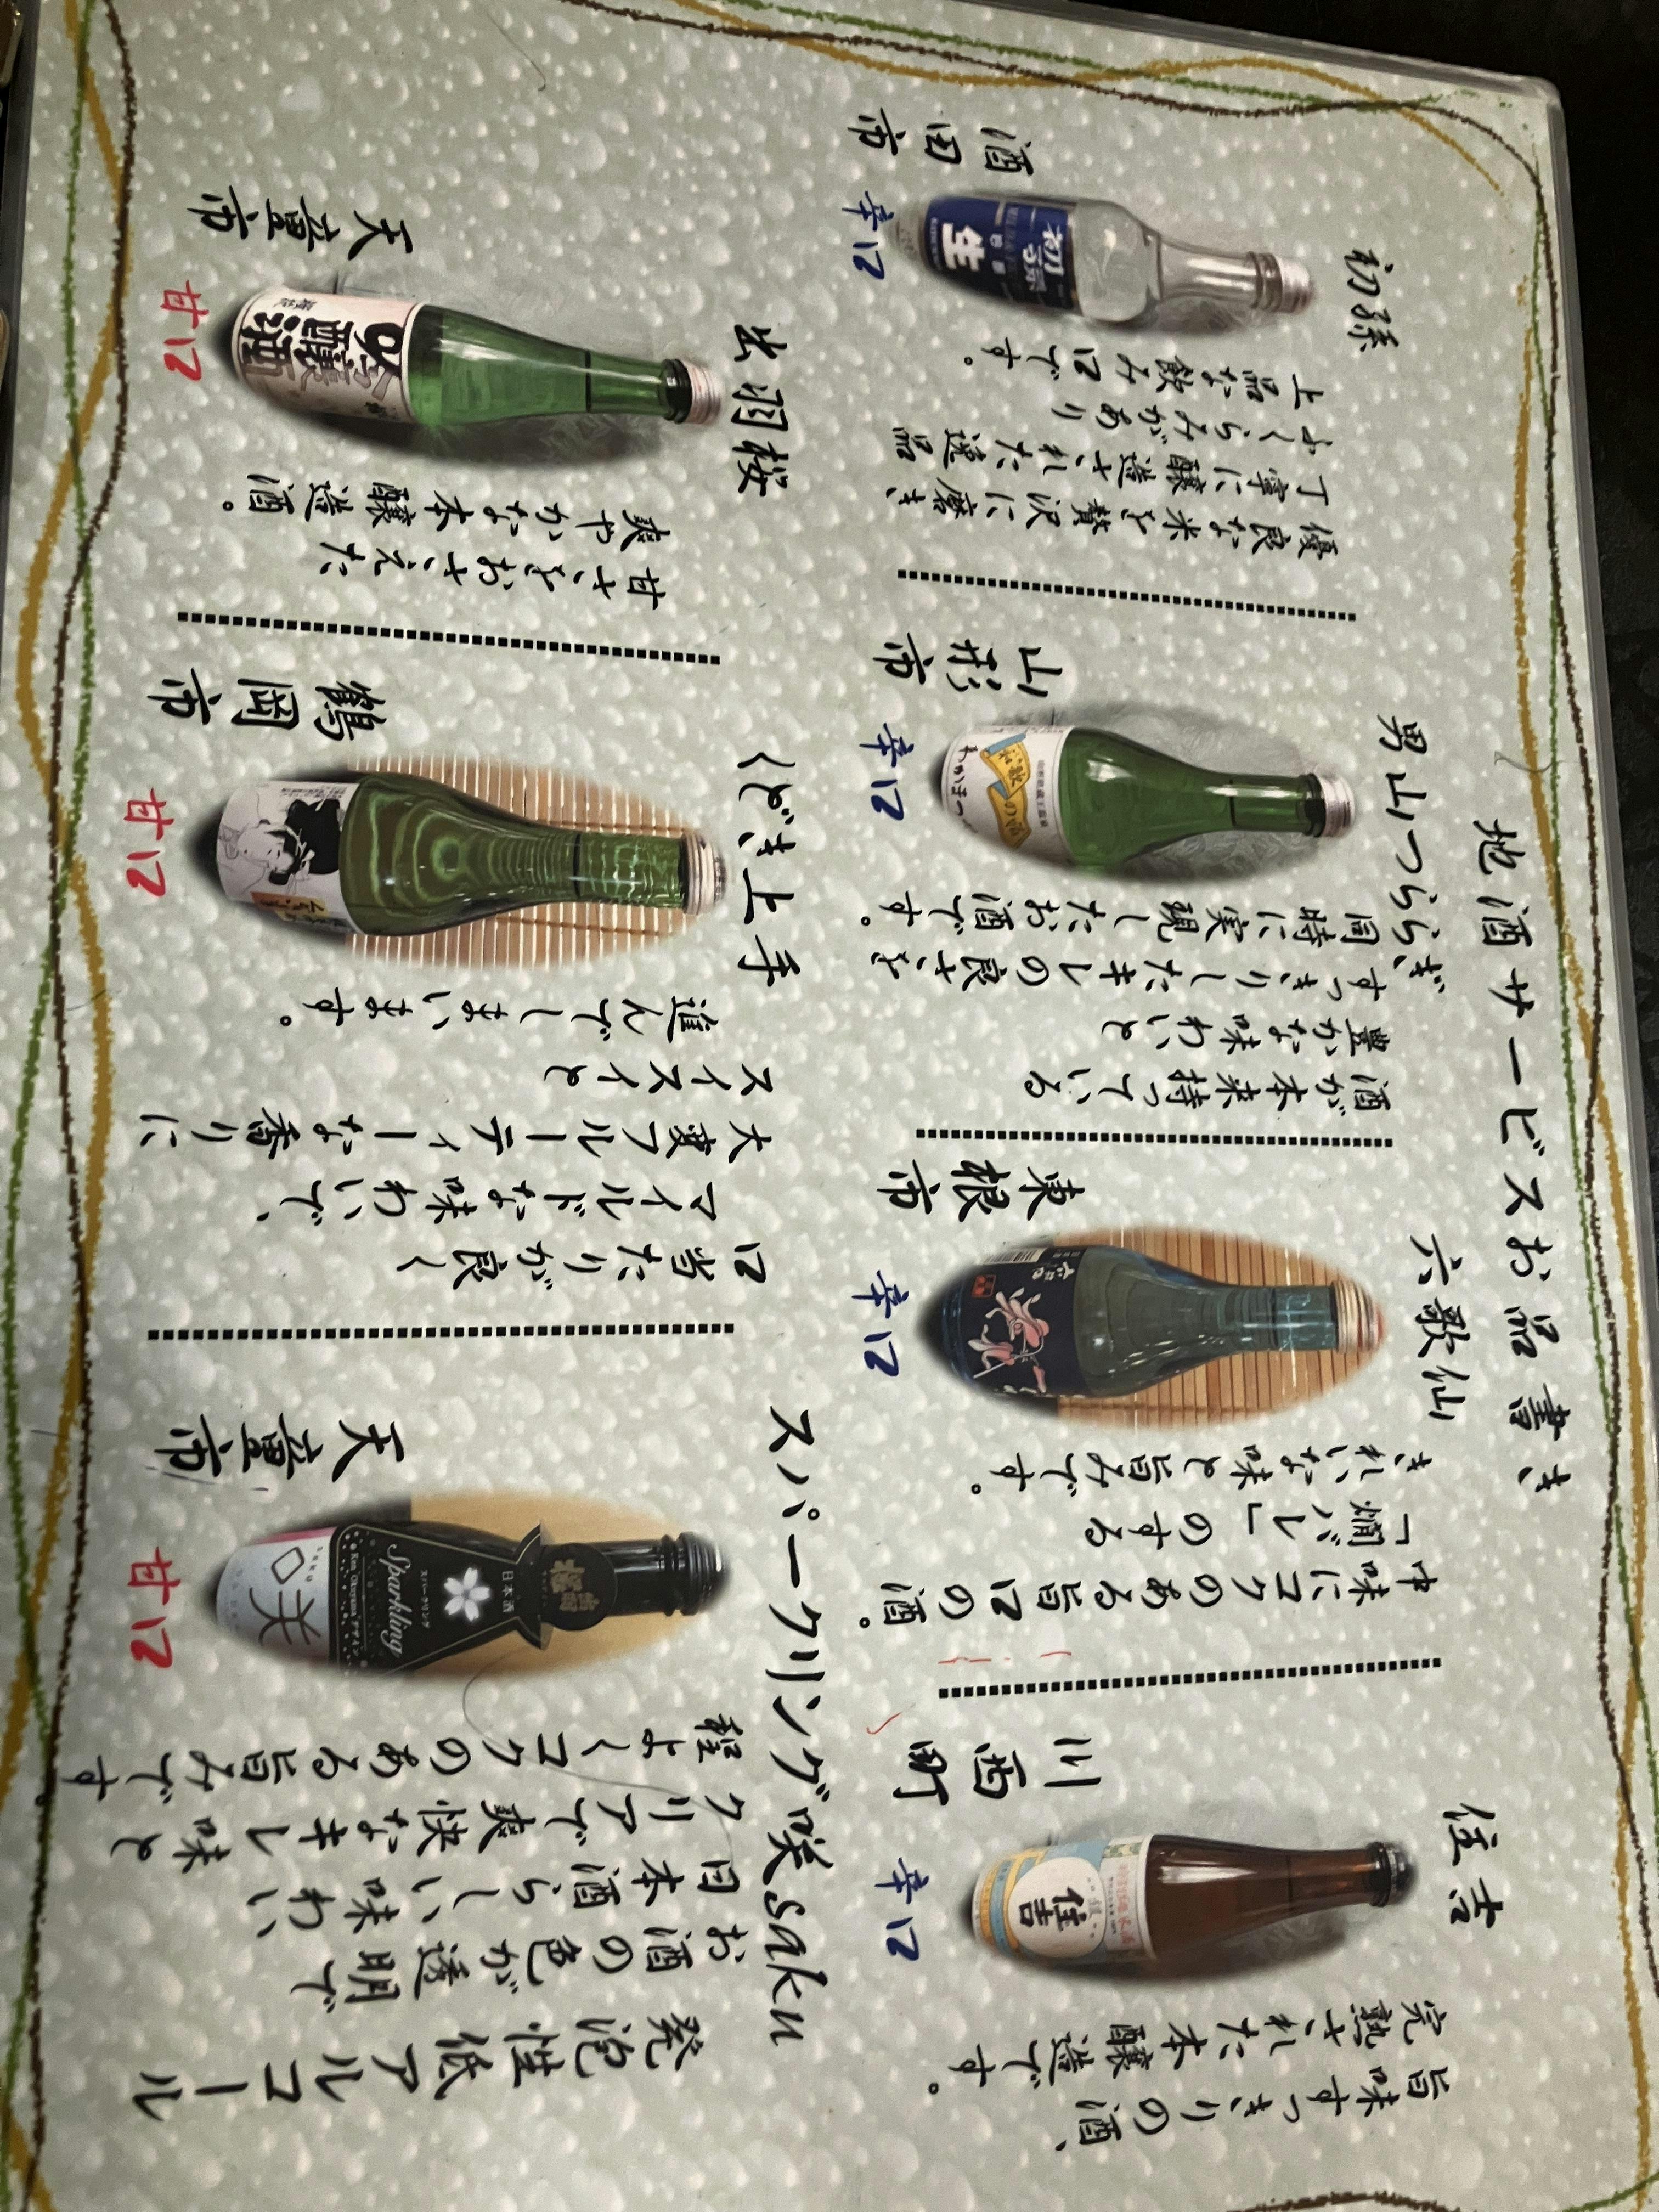 地酒サービスお品書き
初孫
優良な米を贅沢に磨き
丁寧に醸造された逸品
ふくらみがあり
上品な飲み口です。
初孫
生
酒田市
辛口
男山つららぎ
酒が本来持っている
豊かな味わいと
すっきりしたキレの良さを
同時に実現したお酒です。
山形市
辛口
六歌仙
中味にコクのある旨口の酒。
「燗バレ」のする
きれいな味と旨みです。
東根市
辛口
住吉
旨味すっきりの酒、
完熟された本醸造です。
住吉
川西町
辛口
出羽桜
甘さをおさえた
爽やかな本醸造酒。
吟醸酒
天童市
甘口
くどき上手
口当たりが良く
マイルドな味わいで、
大変フルーティーな香りに
スイスイと
進んでしまいます。
鶴岡市
甘口
スパークリング咲saku
発泡性低アルコール
お酒の色が透明で
日本酒らしい味わい
クリアで爽快なキレ味と
程よくコクのある旨みです
日本酒
スパークリング
Sparkling
Ken Okuyamaデザイン
咲
天童市
甘口